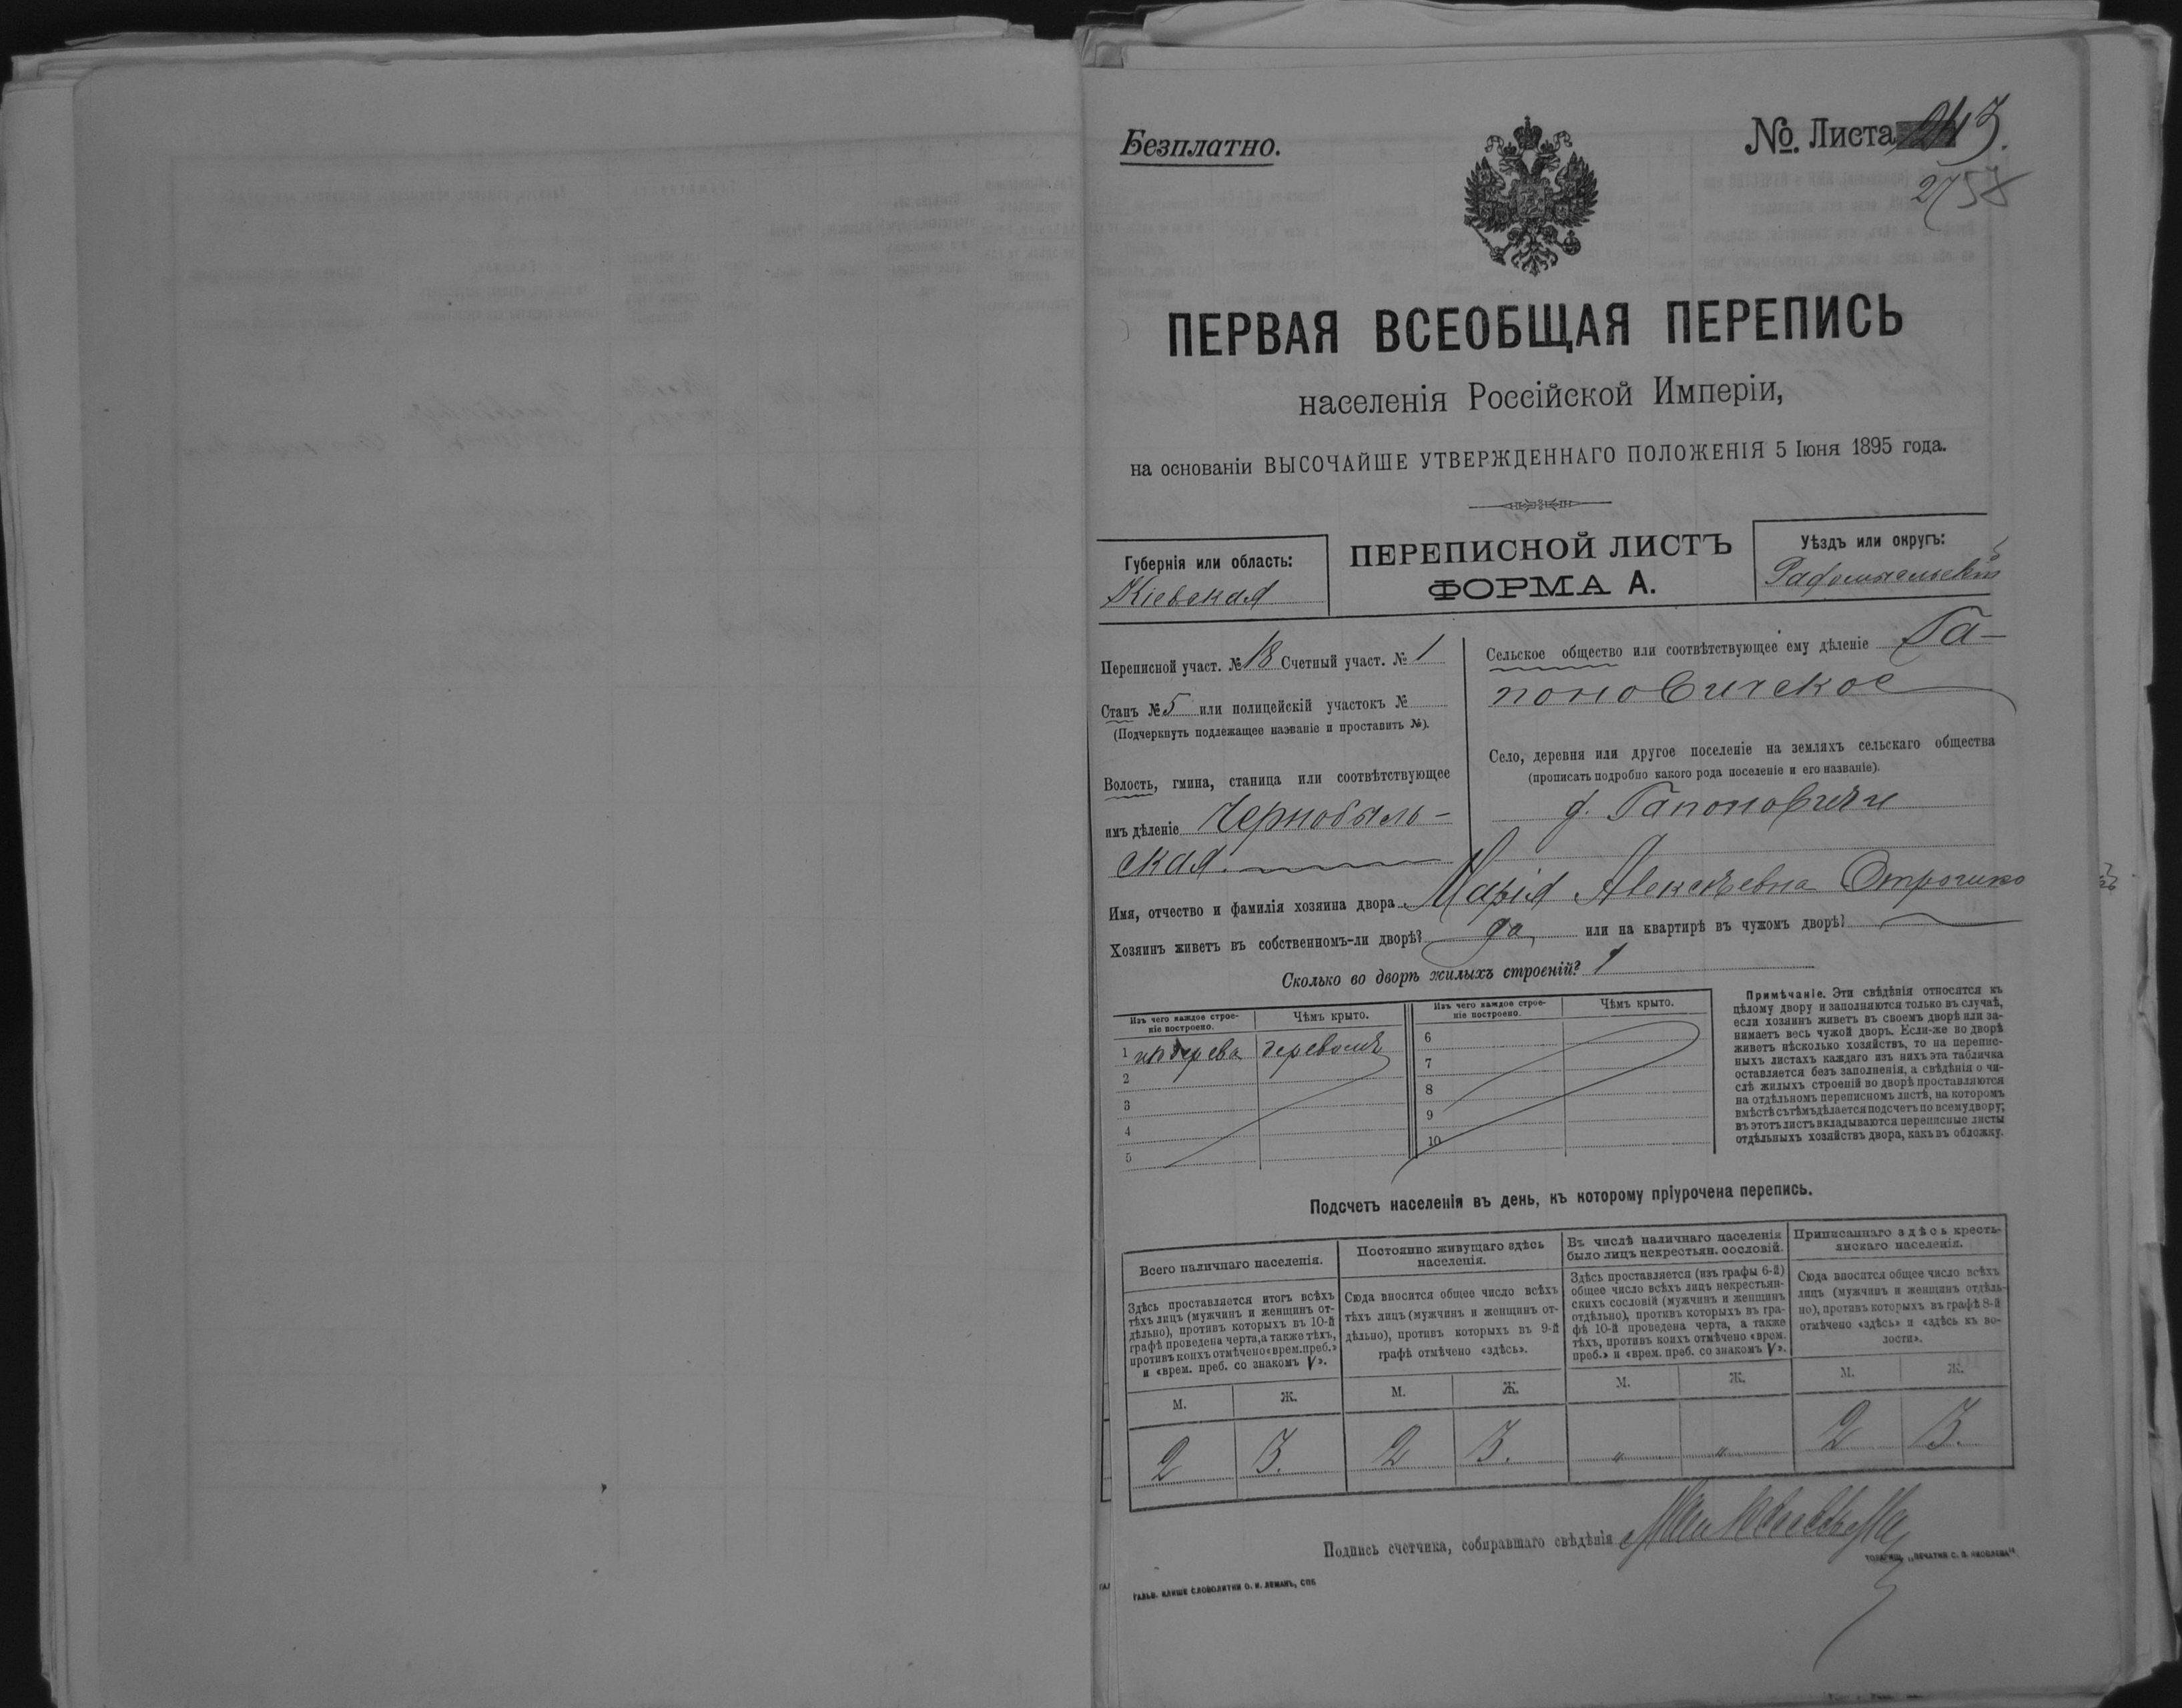 Безплатно.
№. Листа 3.
275
ПЕРВАЯ ВСЕОБЩАЯ ПЕРЕПИСЬ
населенія Россійской Имперіи,
на основаніи ВЫСОЧАЙШЕ УТВЕРЖДЕННАГО ПОЛОЖЕНІЯ 5 Іюня 1895 года.
Губернія или область:
Кіевская
ПЕРЕПИСНОЙ ЛИСТЪ
ФОРМА А.
Уѣздъ или округъ:
Радомысльскій
Переписной участ. № 18 Счетный участ. № 1
Станъ № 5 или полицейскій участокъ №
(Подчеркнуть подлежащее названіе и проставить №).
Волость, гмина, станица или соотвѣтствующее
имъ дѣленіе Чернобыль-
ская.
Сельское общество или соотвѣтствующее ему дѣленіе Га-
поновичское
Село, деревня или другое поселеніе на земляхъ сельскаго общества
(прописать подробно какого рода поселеніе и его названіе).
д. Гапоновичи
Имя, отчество и фамилія хозяина двора Марія Алексѣевна
Хозяинъ живетъ въ собственномъ-ли дворѣ? да или на квартирѣ въ чужомъ дворѣ?
Сколько во дворѣ жилыхъ строеній? 1
Изъ чего каждое строе-
ніе построено.
Чѣмъ крыто.
1 изъ дерева деревомъ
2
3
4
5
Изъ чего каждое строе-
ніе построено.
Чѣмъ крыто.
6
7
8
9
10
Примѣчаніе. Эти свѣдѣнія относятся къ
цѣлому двору и заполняются только въ случаѣ,
если хозяинъ живетъ въ своемъ дворѣ или за-
нимаетъ весь чужой дворъ. Если-же во дворѣ
живетъ нѣсколько хозяйствъ, то на перепис-
ныхъ листахъ каждаго изъ нихъ эта табличка
оставляется безъ заполненія, а свѣдѣнія о чи-
слѣ жилыхъ строеній во дворѣ проставляются
на отдѣльномъ переписномъ листѣ, на которомъ
вмѣстѣ съ тѣмъ дѣлается подсчетъ по всему двору;
въ этотъ листъ вкладываются переписные листы
отдѣльныхъ хозяйствъ двора, какъ въ обложку.
Подсчетъ населенія въ день, къ которому пріурочена перепись.
Всего наличнаго населенія.
Здѣсь проставляется итогъ всѣхъ
тѣхъ лицъ (мужчинъ и женщинъ от-
дѣльно), противъ которыхъ въ 10-й
графѣ проведена черта, а также тѣхъ,
противъ коихъ отмѣчено «врем. преб.»
и «врем. преб. со знакомъ V».
М. Ж.
2 3.
Постоянно живущаго здѣсь
населенія.
Сюда вносится общее число всѣхъ
тѣхъ лицъ (мужчинъ и женщинъ от-
дѣльно), противъ которыхъ въ 9-й
графѣ отмѣчено «здѣсь».
М. Ж.
2 3.
Въ числѣ наличнаго населенія
было лицъ некрестьян. сословій.
Здѣсь проставляется (изъ графы 6-й)
общее число всѣхъ лицъ некрестьян-
скихъ сословій (мужчинъ и женщинъ
отдѣльно), противъ которыхъ въ гра-
фѣ 10-й проведена черта, а также
тѣхъ, противъ коихъ отмѣчено «врем.
преб.» и «врем. преб. со знакомъ V».
М. Ж.
" "
Приписаннаго здѣсь кресть-
янскаго населенія.
Сюда вносится общее число всѣхъ
лицъ (мужчинъ и женщинъ отдѣль-
но), противъ которыхъ въ графѣ 8-й
отмѣчено «здѣсь» и «здѣсь къ во-
лости».
М. Ж.
2 3.
Подпись счетчика, собиравшаго свѣдѣнія
ТОВАРИЩ. „ПЕЧАТНЯ С. П. ЯКОВЛЕВА“.
ГАЛЬВ. КЛИШЕ СЛОВОЛИТНИ О. И. ЛЕМАНЪ, СПБ